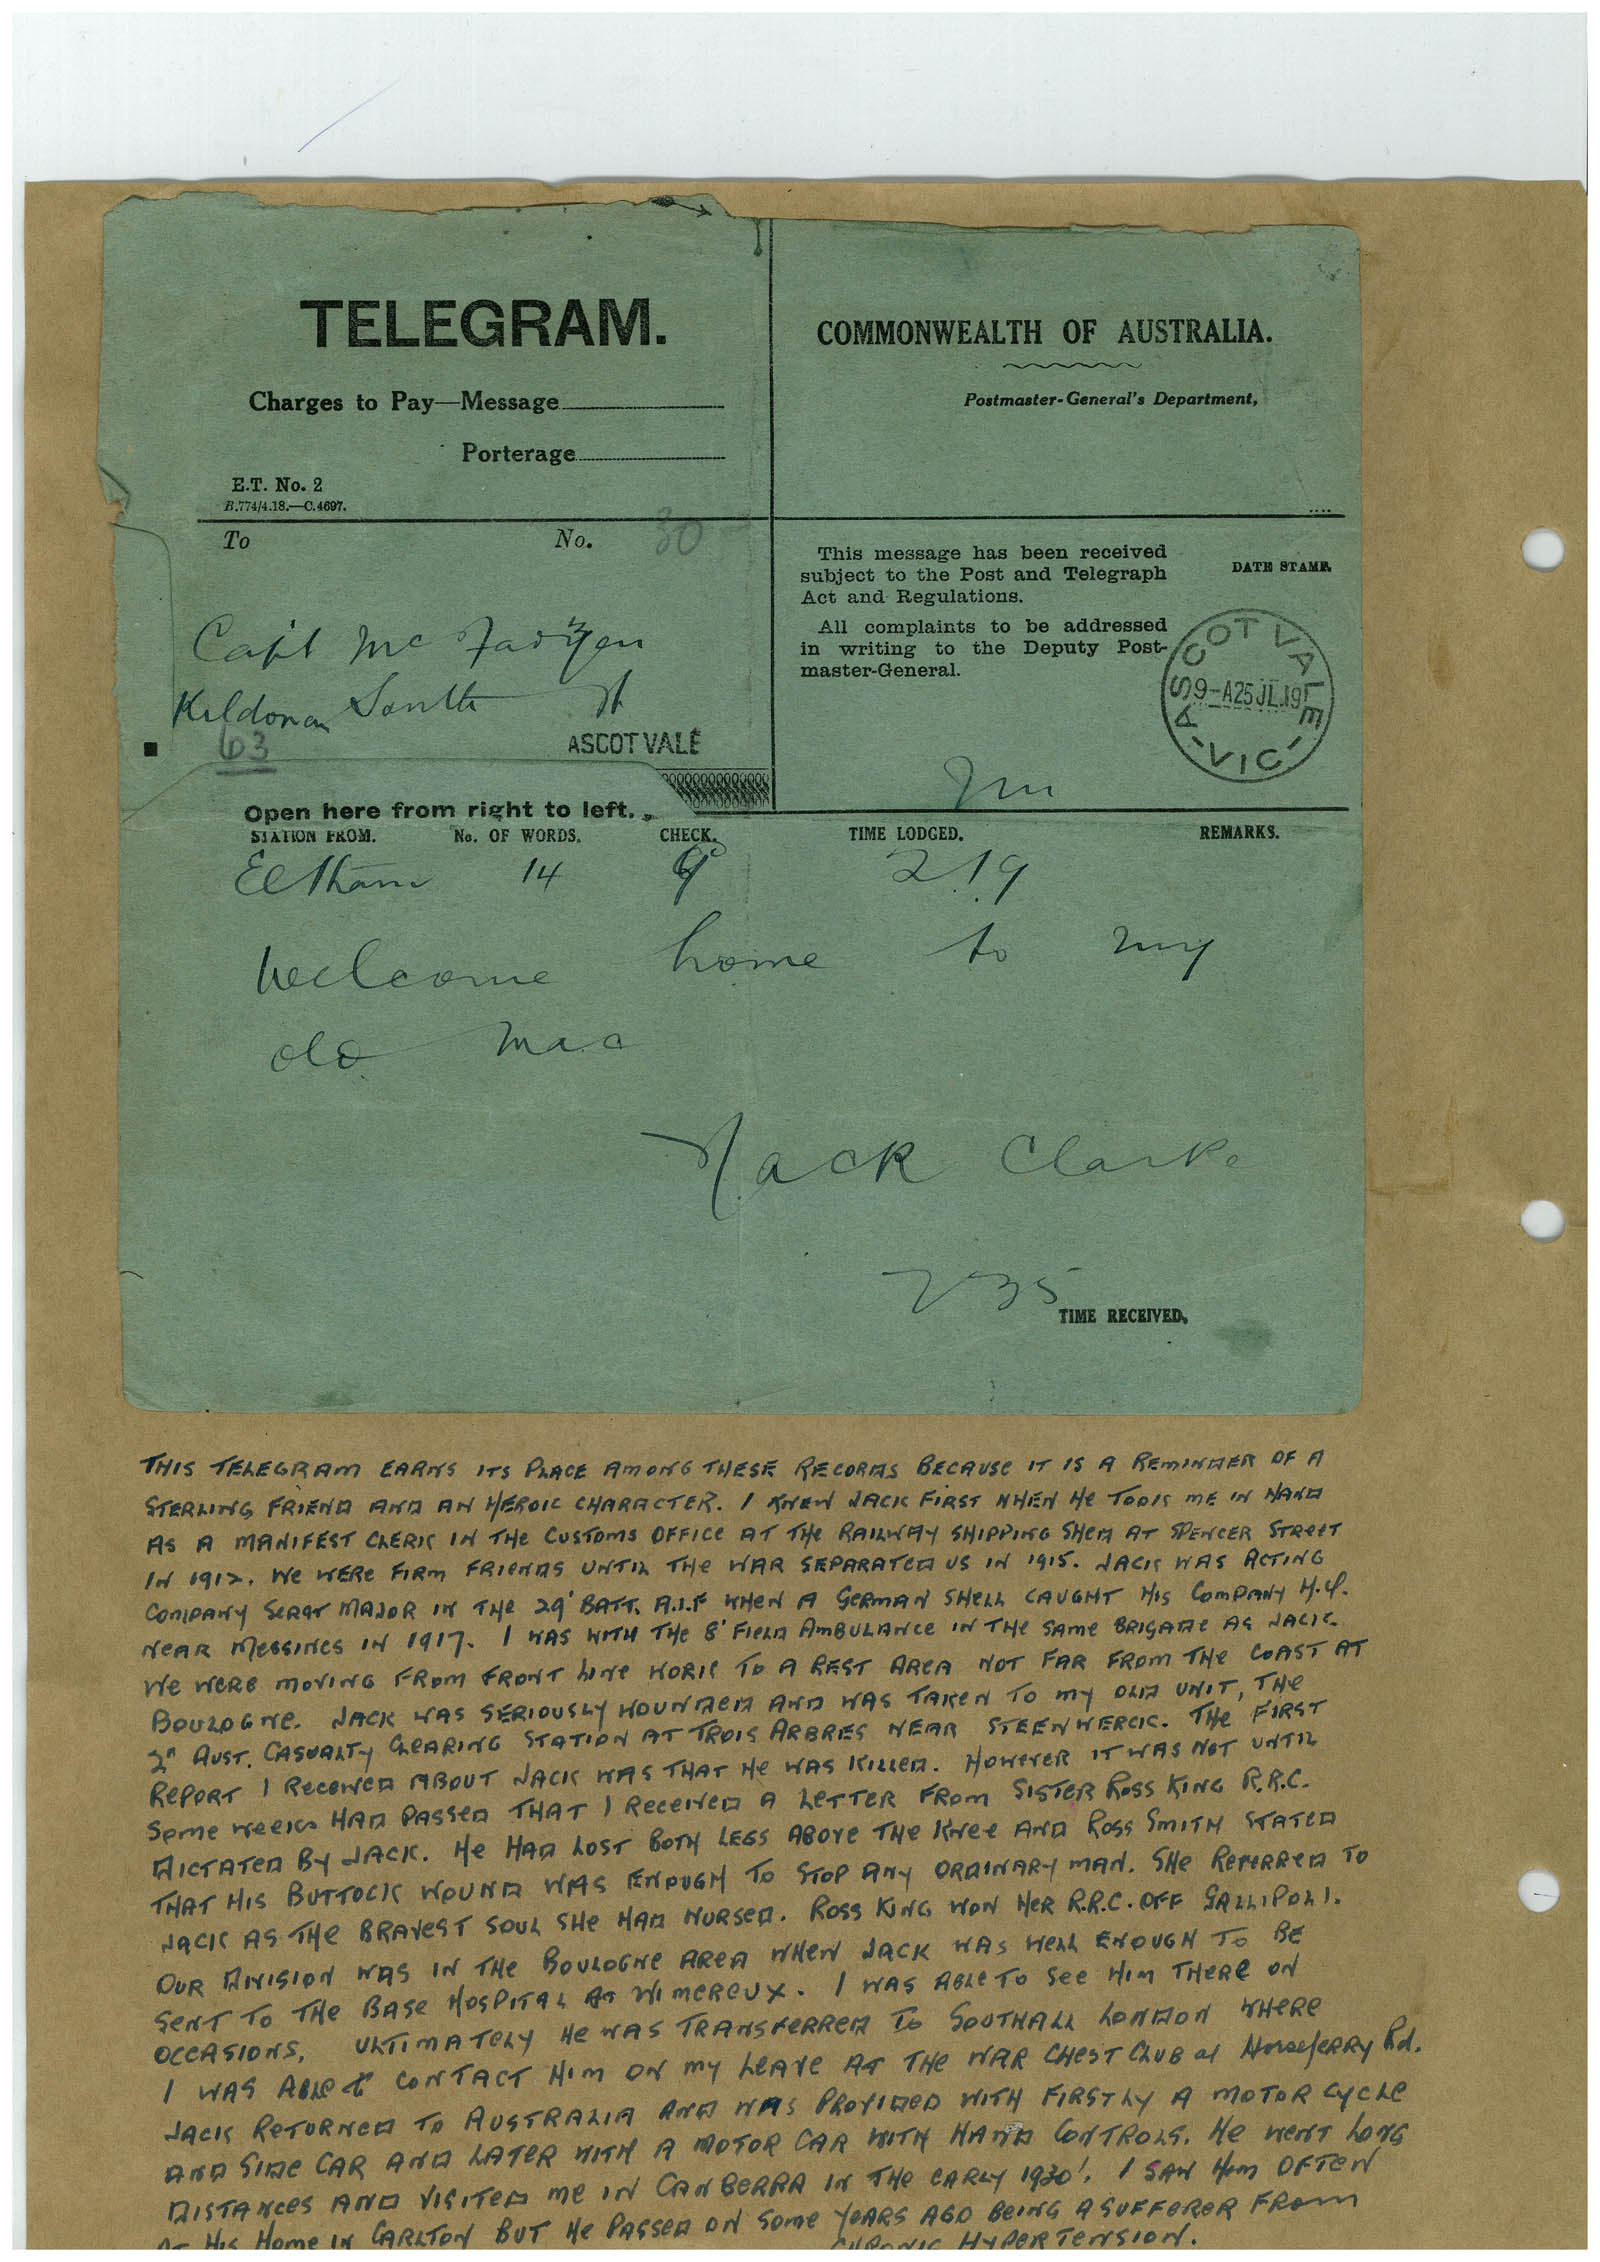 TELEGRAM.
Charges to Pay—Message
Porterage
E.T. No. 2
B.774/4.18.—C.4697.
COMMONWEALTH OF AUSTRALIA.
Postmaster-General's Department,
To No. 30
Capt McFadyen
Kildonan South St
63
ASCOT VALE
This message has been received
subject to the Post and Telegraph
Act and Regulations.
All complaints to be addressed
in writing to the Deputy Post-
master-General.
DATE STAMP.
ASCOT VALE
9-A25JL.19
VIC
Open here from right to left.
STATION FROM. No. OF WORDS. CHECK. TIME LODGED. REMARKS.
Eltham 14 2.19
Welcome home to my
old Mac
Jack Clarke
235
TIME RECEIVED.
THIS TELEGRAM EARNS ITS PLACE AMONG THESE RECORDS BECAUSE IT IS A REMINDER OF A
STERLING FRIEND AND AN HEROIC CHARACTER. I KNEW JACK FIRST WHEN HE TOOK ME IN HAND
AS A MANIFEST CLERK IN THE CUSTOMS OFFICE AT THE RAILWAY SHIPPING SHED AT SPENCER STREET
IN 1912. WE WERE FIRM FRIENDS UNTIL THE WAR SEPARATED US IN 1915. JACK WAS ACTING
COMPANY SERGT MAJOR IN THE 29' BATT. A.I.F WHEN A GERMAN SHELL CAUGHT HIS COMPANY H.Q.
NEAR MESSINES IN 1917. I WAS WITH THE 8' FIELD AMBULANCE IN THE SAME BRIGADE AS JACK.
WE WERE MOVING FROM FRONT LINE WORK TO A REST AREA NOT FAR FROM THE COAST AT
BOULOGNE. JACK WAS SERIOUSLY WOUNDED AND WAS TAKEN TO MY OLD UNIT, THE
2n AUST. CASUALTY CLEARING STATION AT TROIS ARBRES NEAR STEENWERCK. THE FIRST
REPORT I RECEIVED ABOUT JACK WAS THAT HE WAS KILLED. HOWEVER IT WAS NOT UNTIL
SOME WEEKS HAD PASSED THAT I RECEIVED A LETTER FROM SISTER ROSS KING R.R.C.
DICTATED BY JACK. HE HAD LOST BOTH LEGS ABOVE THE KNEE AND ROSS SMITH STATED
THAT HIS BUTTOCK WOUND WAS ENOUGH TO STOP ANY ORDINARY MAN. SHE REFERRED TO
JACK AS THE BRAVEST SOUL SHE HAD NURSED. ROSS KING WON HER R.R.C. OFF GALLIPOLI.
OUR DIVISION WAS IN THE BOULOGNE AREA WHEN JACK WAS WELL ENOUGH TO BE
SENT TO THE BASE HOSPITAL AT WIMEREUX. I WAS ABLE TO SEE HIM THERE ON
OCCASIONS. ULTIMATELY HE WAS TRANSFERRED TO SOUTHALL LONDON WHERE
I WAS ABLE to CONTACT HIM ON MY LEAVE AT THE WAR CHEST CLUB at Horseferry Rd.
JACK RETURNED TO AUSTRALIA AND WAS PROVIDED WITH FIRSTLY A MOTOR CYCLE
AND SIDE CAR AND LATER WITH A MOTOR CAR WITH HAND CONTROLS. HE WENT LONG
DISTANCES AND VISITED ME IN CANBERRA IN THE EARLY 1930'. I SAW HIM OFTEN
AT HIS HOME IN CARLTON BUT HE PASSED ON SOME YEARS AGO BEING A SUFFERER FROM
CHRONIC HYPERTENSION.